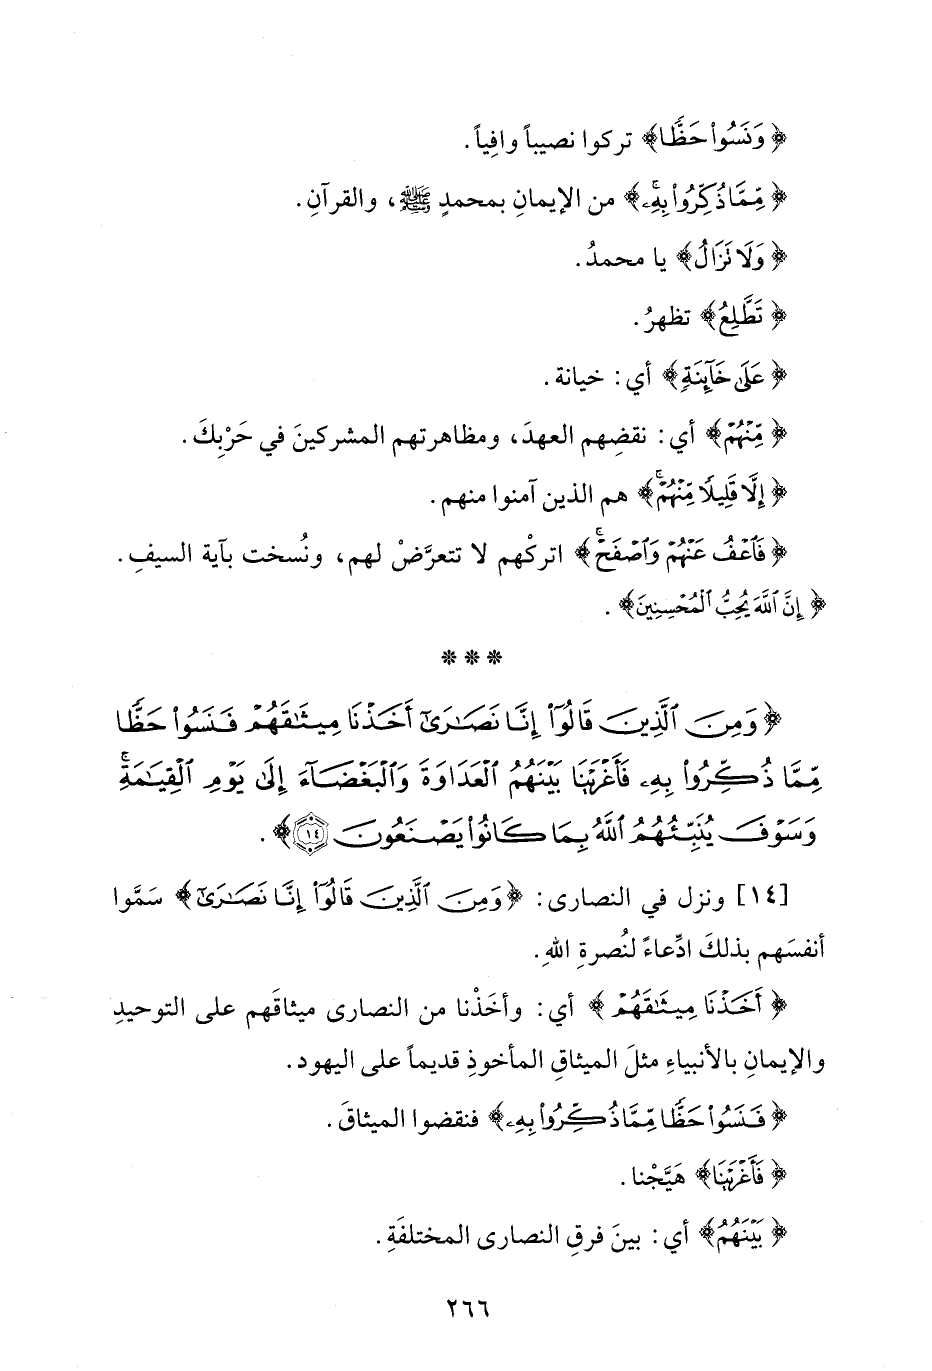 ﴿ وَنَسُوا۟ حَظًّا﴾ تركوا نصيباً وافِياً.
﴿ مِّمَّا ذُكِّرُوا۟ بِهِۦۚ﴾ من الإيمانِ بمحمدٍ ﷺ، والقرآنِ.
﴿ وَلَا تَزَالُ﴾ يا محمدُ.
﴿ تَطَّلِعُ﴾ تظهرُ.
﴿ عَلَىٰ خَآئِنَةٍ﴾ أي: خيانة.
﴿ مِّنْهُمْ﴾ أي: نقضِهم العهدَ، ومظاهرتهم المشركينَ في حَرْبِكَ.
﴿ إِلَّا قَلِيلًا مِّنْهُمْۖ﴾ هم الذين آمنوا منهم.
﴿ فَٱعْفُ عَنْهُمْ وَٱصْفَحْۚ﴾ اتركْهم لا تتعرَّضْ لهم، ونُسخت بآية السيفِ.
﴿ إِنَّ ٱللَّهَ يُحِبُّ ٱلْمُحْسِنِينَ﴾.
* * *
﴿ وَمِنَ ٱلَّذِينَ قَالُوٓا۟ إِنَّا نَصَـٰرَىٰٓ أَخَذْنَا مِيثَـٰقَهُمْ فَنَسُوا۟ حَظًّا
مِّمَّا ذُكِّرُوا۟ بِهِۦ فَأَغْرَيْنَا بَيْنَهُمُ ٱلْعَدَاوَةَ وَٱلْبَغْضَآءَ إِلَىٰ يَوْمِ ٱلْقِيَـٰمَةِۚ
وَسَوْفَ يُنَبِّئُهُمُ ٱللَّهُ بِمَا كَانُوا۟ يَصْنَعُونَ ١٤﴾.
[١٤] ونزل في النصارى: ﴿ وَمِنَ ٱلَّذِينَ قَالُوٓا۟ إِنَّا نَصَـٰرَىٰٓ﴾ سَمَّوا
أنفسَهم بذلكَ ادِّعاءً لنُصرةِ اللهِ.
﴿ أَخَذْنَا مِيثَـٰقَهُمْ ﴾ أي: وأخَذْنا من النصارى ميثاقَهم على التوحيدِ
والإيمانِ بالأنبياءِ مثلَ الميثاقِ المأخوذِ قديماً على اليهود.
﴿ فَنَسُوا۟ حَظًّا مِّمَّا ذُكِّرُوا۟ بِهِۦ﴾ فنقضوا الميثاقَ.
﴿ فَأَغْرَيْنَا﴾ هَيَّجْنا.
﴿ بَيْنَهُمُ﴾ أي: بينَ فرقِ النصارى المختلفَةِ.
٢٦٦